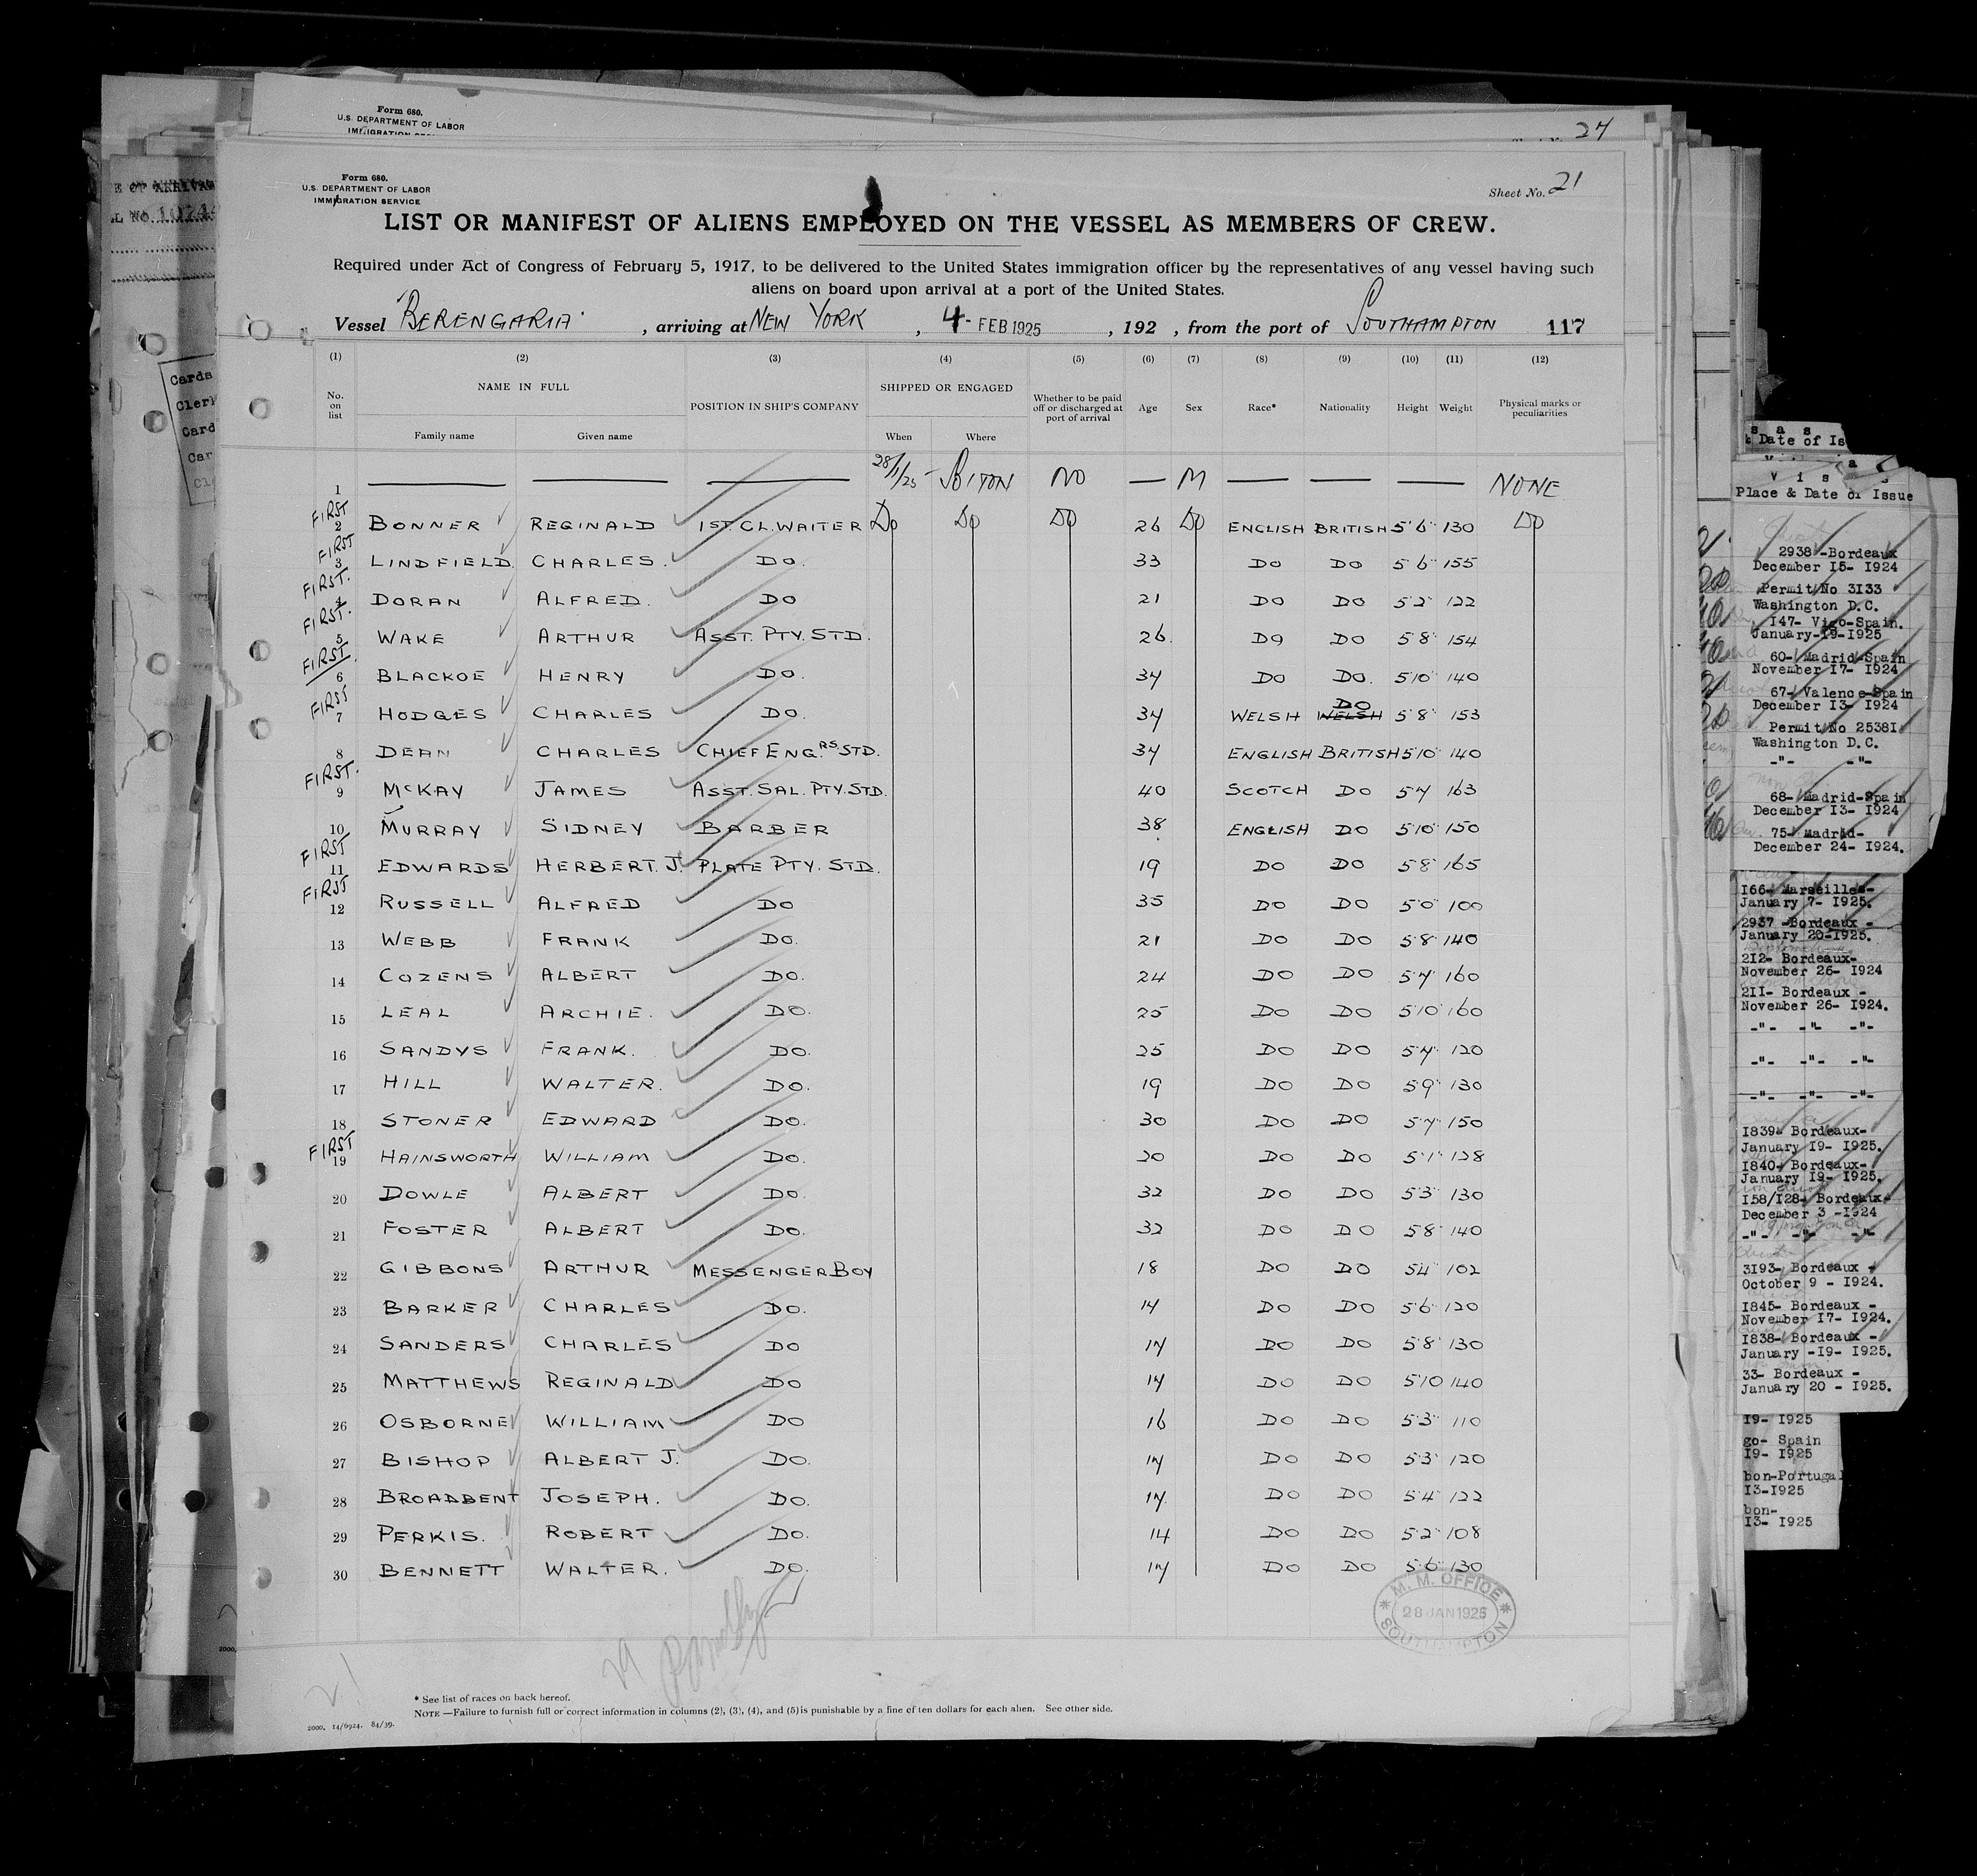 Form 680.
U.S. DEPARTMENT OF LABOR
27
Form 680.
U.S. DEPARTMENT OF LABOR
IMMIGRATION SERVICE
Sheet No. 21
LIST OR MANIFEST OF ALIENS EMPLOYED ON THE VESSEL AS MEMBERS OF CREW.
Required under Act of Congress of February 5, 1917, to be delivered to the United States immigration officer by the representatives of any vessel having such
aliens on board upon arrival at a port of the United States.
Vessel BERENGARIA , arriving at NEW YORK , 4- FEB 1925 , 192 , from the port of SOUTHAMPTON 117
(1) (2) (3) (4) (5) (6) (7) (8) (9) (10) (11) (12)
No. on list NAME IN FULL POSITION IN SHIP'S COMPANY SHIPPED OR ENGAGED Whether to be paid off or discharged at port of arrival Age Sex Race* Nationality Height Weight Physical marks or peculiarities
Family name Given name When Where
1 — — — 28/1/25 - SOITON NO — M — — — NONE
FIRST 2 BONNER REGINALD 1ST. CL. WAITER DO DO DO 26 DO ENGLISH BRITISH 5'6" 130 DO
FIRST 3 LINDFIELD CHARLES. DO. 33 DO DO 5'6" 155
FIRST. 4 DORAN ALFRED. DO 21 DO DO 5'2" 122
FIRST. 5 WAKE ARTHUR ASST. PTY. STD. 26. DO DO 5'8" 154
FIRST. 6 BLACKOE HENRY DO. 34 DO DO. 5'10" 140
FIRST 7 HODGES CHARLES DO. 34 WELSH WELSH DO 5'8" 153
8 DEAN CHARLES CHIEF ENG.RS. STD. 34 ENGLISH BRITISH 5'10" 140
FIRST. 9 McKAY JAMES ASST. SAL. PTY. STD. 40 SCOTCH DO 5'7" 163
10 MURRAY SIDNEY BARBER 38 ENGLISH DO 5'10" 150
FIRST 11 EDWARDS HERBERT. J. PLATE PTY. STD. 19 DO DO 5'8" 165
FIRST 12 RUSSELL ALFRED DO 35 DO DO 5'0" 100
13 WEBB FRANK DO. 21 DO DO 5'8" 140
14 COZENS ALBERT DO. 24 DO DO 5'7" 160
15 LEAL ARCHIE. DO. 25 DO DO 5'10" 160
16 SANDYS FRANK. DO. 25 DO DO 5'7" 120
17 HILL WALTER. DO. 19 DO DO 5'9" 130
18 STONER EDWARD DO. 30 DO DO 5'7" 150
FIRST 19 HAINSWORTH WILLIAM DO. 20 DO DO 5'1" 128
20 DOWLE ALBERT DO. 32 DO DO 5'3" 130
21 FOSTER ALBERT DO. 32 DO DO 5'8" 140
22 GIBBONS ARTHUR MESSENGER BOY 18 DO DO 5'4" 102
23 BARKER CHARLES DO. 17 DO DO 5'6" 120
24 SANDERS CHARLES DO 17 DO DO 5'8" 130
25 MATTHEWS REGINALD DO 17 DO DO 5'10 140
26 OSBORNE WILLIAM DO 16 DO DO 5'3" 110
27 BISHOP ALBERT J. DO. 17 DO DO 5'3" 120
28 BROADBENT JOSEPH. DO. 17. DO DO 5'4" 122
29 PERKIS. ROBERT DO. 14 DO DO 5'2" 108
30 BENNETT WALTER. DO. 17 DO DO 5'6" 130
M. M. OFFICE
28 JAN 1925
SOUTHAMPTON
29
* See list of races on back hereof.
NOTE —Failure to furnish full or correct information in columns (2), (3), (4), and (5) is punishable by a fine of ten dollars for each alien. See other side.
2000. 14/6924. 84/39.
Cards
Card
& Date of Is
V i s a s
Place & Date of Issue
2938 -Bordeaux
December 15- 1924
Permit No 3133
Washington D.C.
147- Vigo-Spain.
January-19-1925
60- Madrid-Spain
November 17- 1924
67- Valence-Spain
December 13- 1924
Permit No 25381
Washington D.C.
-"- -"-
68- Madrid-Spain
December 13- 1924
75- Madrid-
December 24- 1924.
166- Marseilles-
January 7- 1925.
2937 -Bordeaux -
January 20-1925.
212- Bordeaux-
November 26- 1924
211- Bordeaux -
November 26- 1924.
-"- -"- -"-
-"- -"- -"-
-"- -"- -"-
1839- Bordeaux-
January 19- 1925.
1840- Bordeaux-
January 19- 1925.
158/128- Bordeaux-
December 3 -1924
-"- -"- -"-
3193- Bordeaux -
October 9 - 1924.
1845- Bordeaux -
November 17- 1924.
1838- Bordeaux -
January -19- 1925.
33- Bordeaux -
January 20 - 1925.
19- 1925
go- Spain
19- 1925
bon-Portugal
13-1925
bon-
13- 1925